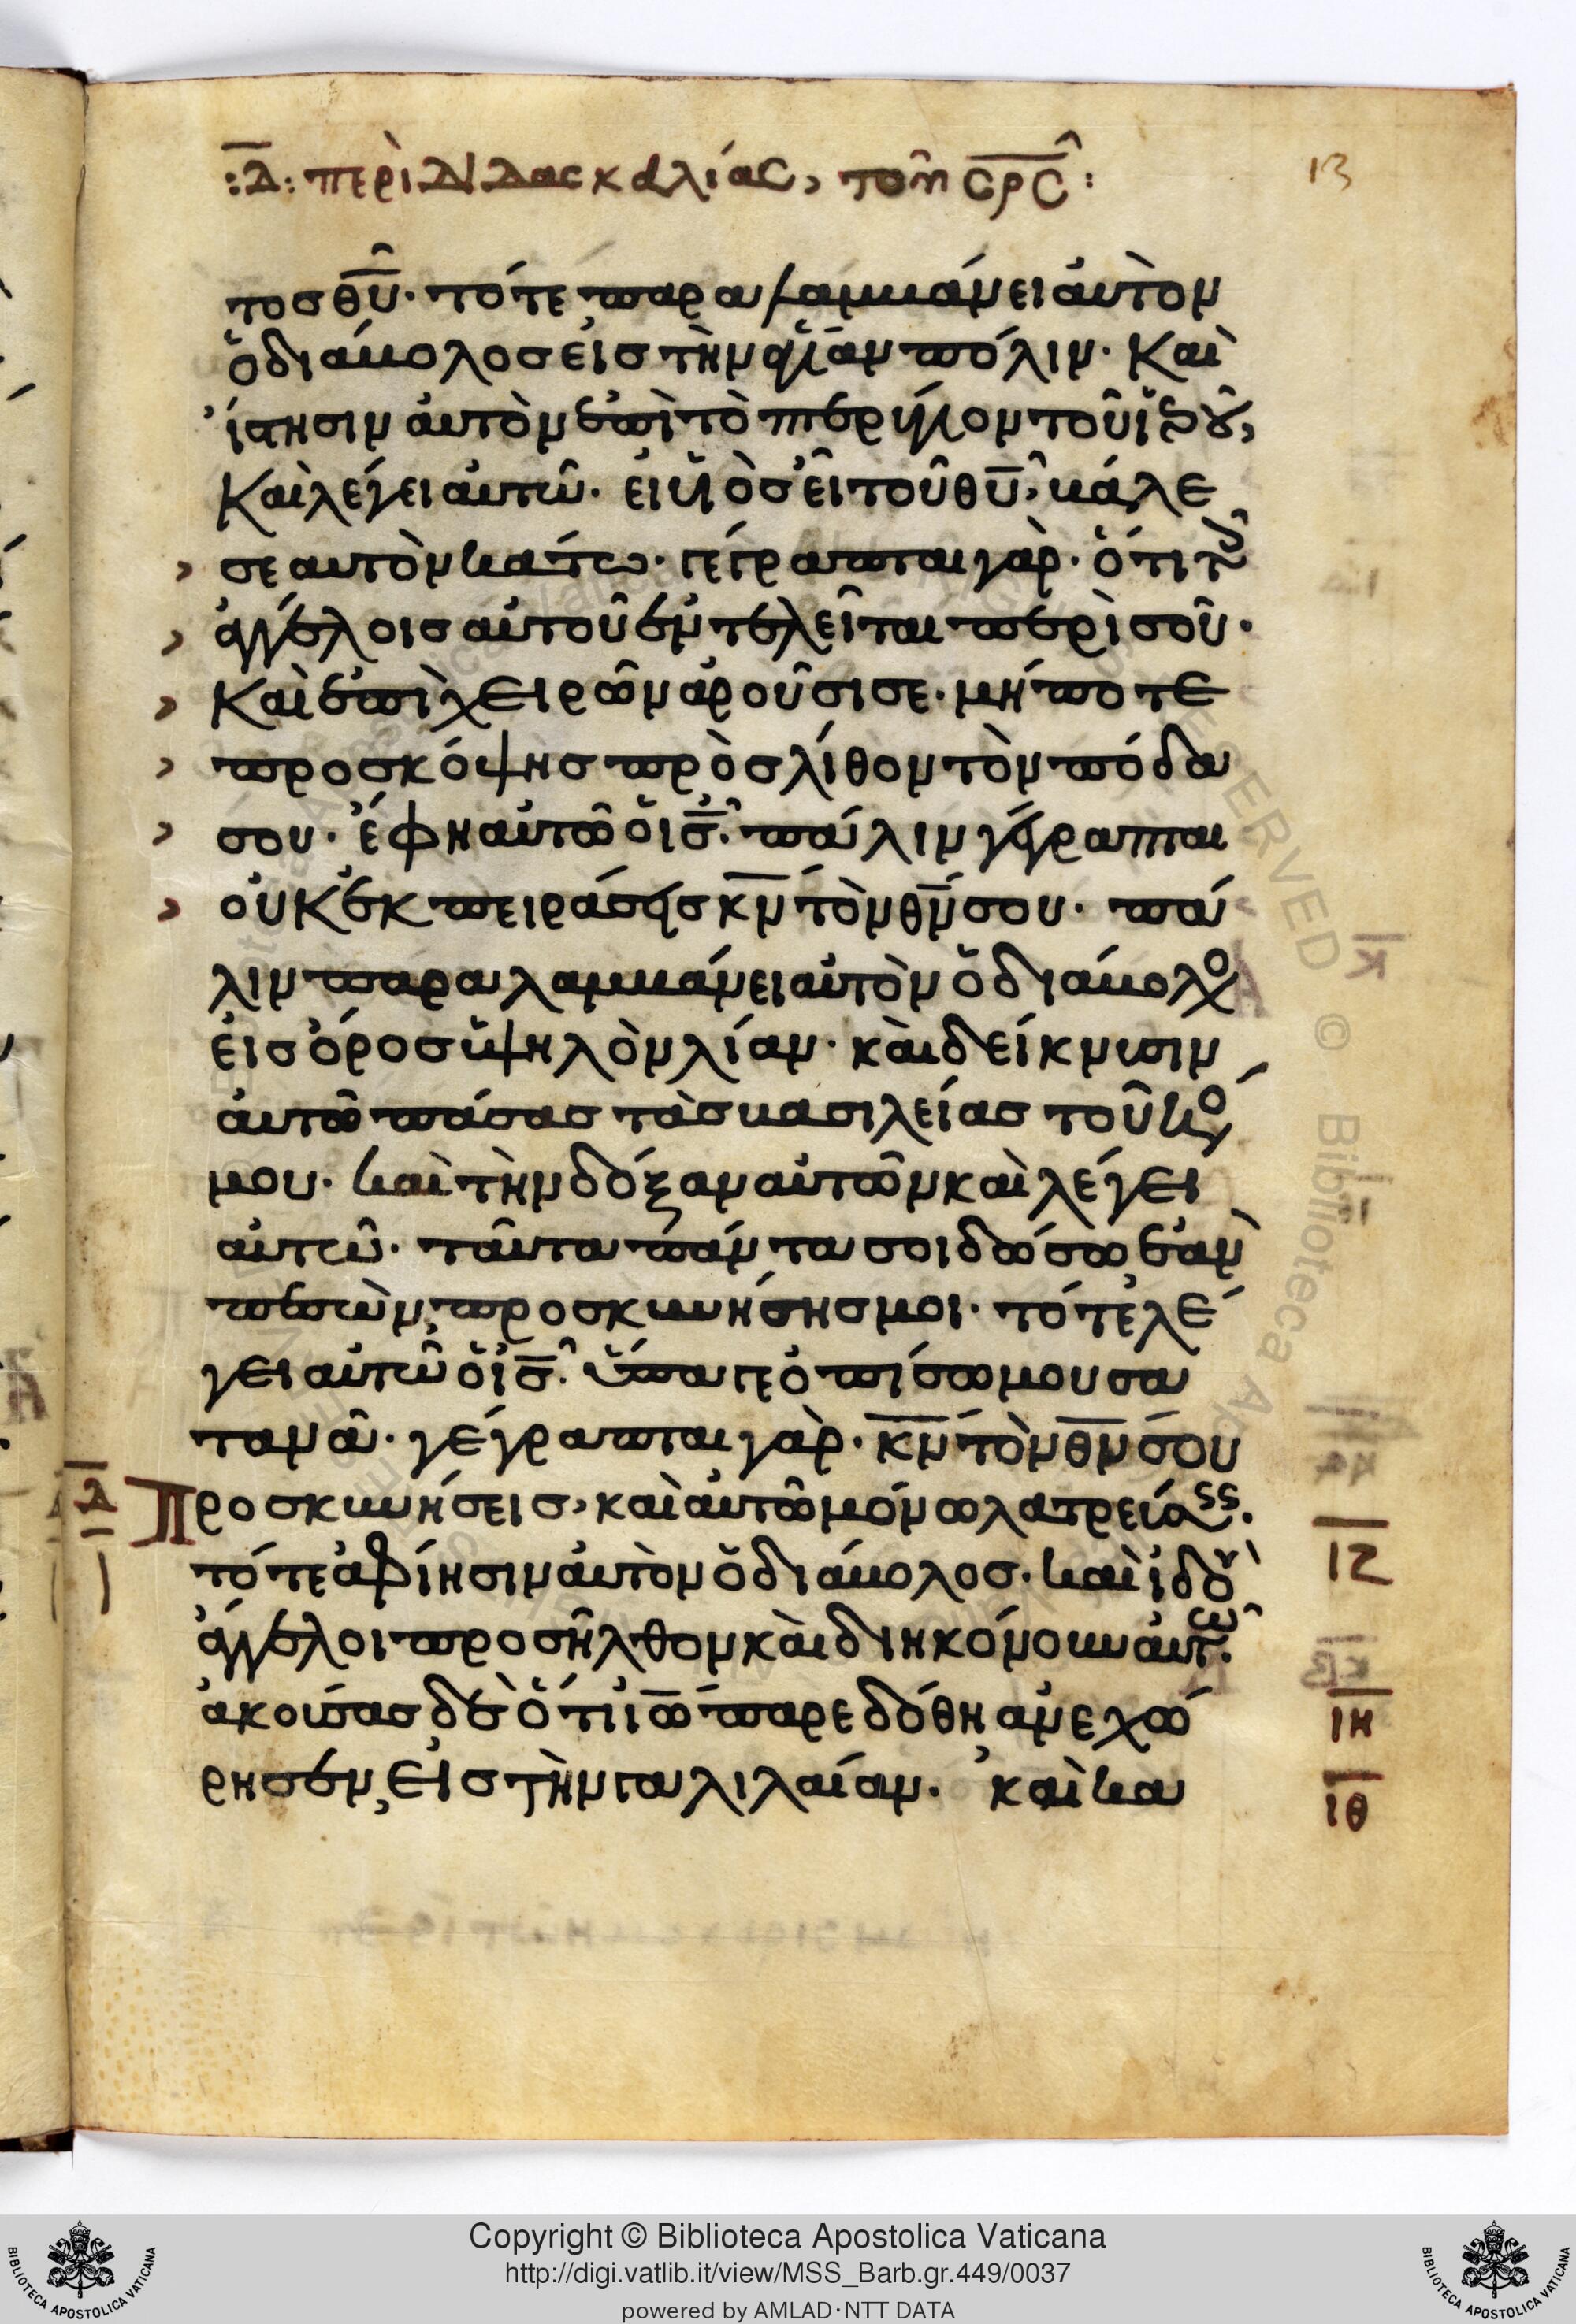 :Δ: περὶ διδασκαλίας, τοῦ σρς:
13
τοσ θῦ· τότε παραλαμβάνει αὐτὸν
ὁ διάβολοσ εἰσ τὴν ἁγίαν πόλιν· Καὶ
ἵστησιν αὐτὸν ἐπὶ τὸ πτερύγιον τοῦ ἱεροῦ,
Καὶ λέγει αὐτῶ· εἰ υἱὸσ εἶ τοῦ θῦ, βάλε
σεαυτὸν κάτω· γέγραπται γὰρ· ὅτι τοῖσ
ἀγγέλοισ αὐτοῦ ἐντελεῖται περὶ σοῦ·
Καὶ ἐπὶ χειρῶν ἀροῦσι σε· μήποτε
προσκόψησ πρὸσ λίθον τὸν πόδα
σου· ἔφη αὐτῶ ὁ ισ· πάλιν γέγραπται
οὐκ ἐκπειράσεισ κν τὸν θν σου· πά
λιν παραλαμβάνει αὐτὸν ὁ διάβολο
εἰσ ὄροσ ὑψηλὸν λίαν· καὶ δείκνυσιν
αὐτῶ πάσασ τὰσ βασιλείασ τοῦ κό
μου· καὶ τὴν δόξαν αὐτῶν καὶ λέγει
αὐτῶ· ταῦτα πάντα σοι δώσω ἐὰν
πεσὼν, προσκυνήσησ μοι· τότε λέ
γει αὐτῶ ὁ ισ· ὕπαγε ὀπίσω μου σα
τανᾶ· γέγραπται γὰρ· κν τὸν θν σου
Δ Προσκυνήσεισ, καὶ αὐτῶ μόνω λατρεύσεισ·
τότε ἀφίησιν αὐτὸν ὁ διάβολοσ· καὶ ἰδοὺ
ἄγγελοι προσῆλθον καὶ διηκόνουν αὐτῶ·
ἀκούσασ δὲ ὅτι ιω παρεδόθη ἀνεχώ
ρησεν, εἰσ τὴν γαλιλαίαν· καὶ κα
ΙΖ
ΙΗ
ΙΘ
Copyright © Biblioteca Apostolica Vaticana
http://digi.vatlib.it/view/MSS_Barb.gr.449/0037
powered by AMLAD·NTT DATA
BIBLIOTECA APOSTOLICA VATICANA
BIBLIOTECA APOSTOLICA VATICANA